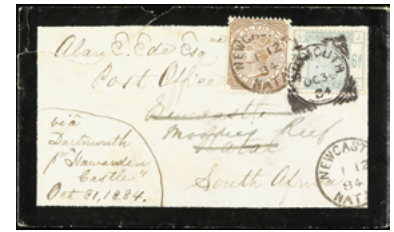 Alan C. Ede Esqre
Post Office
Newcastle
Moodies Reef
Natal
South Africa
via
Dartmouth
pr "Hawarden
Castle"
Oct 31, 1884.
NEWCAST
1 12
84
NATAL
MOUTH
OC 30
84
6d
NEWCAST
1 12
84
NATAL